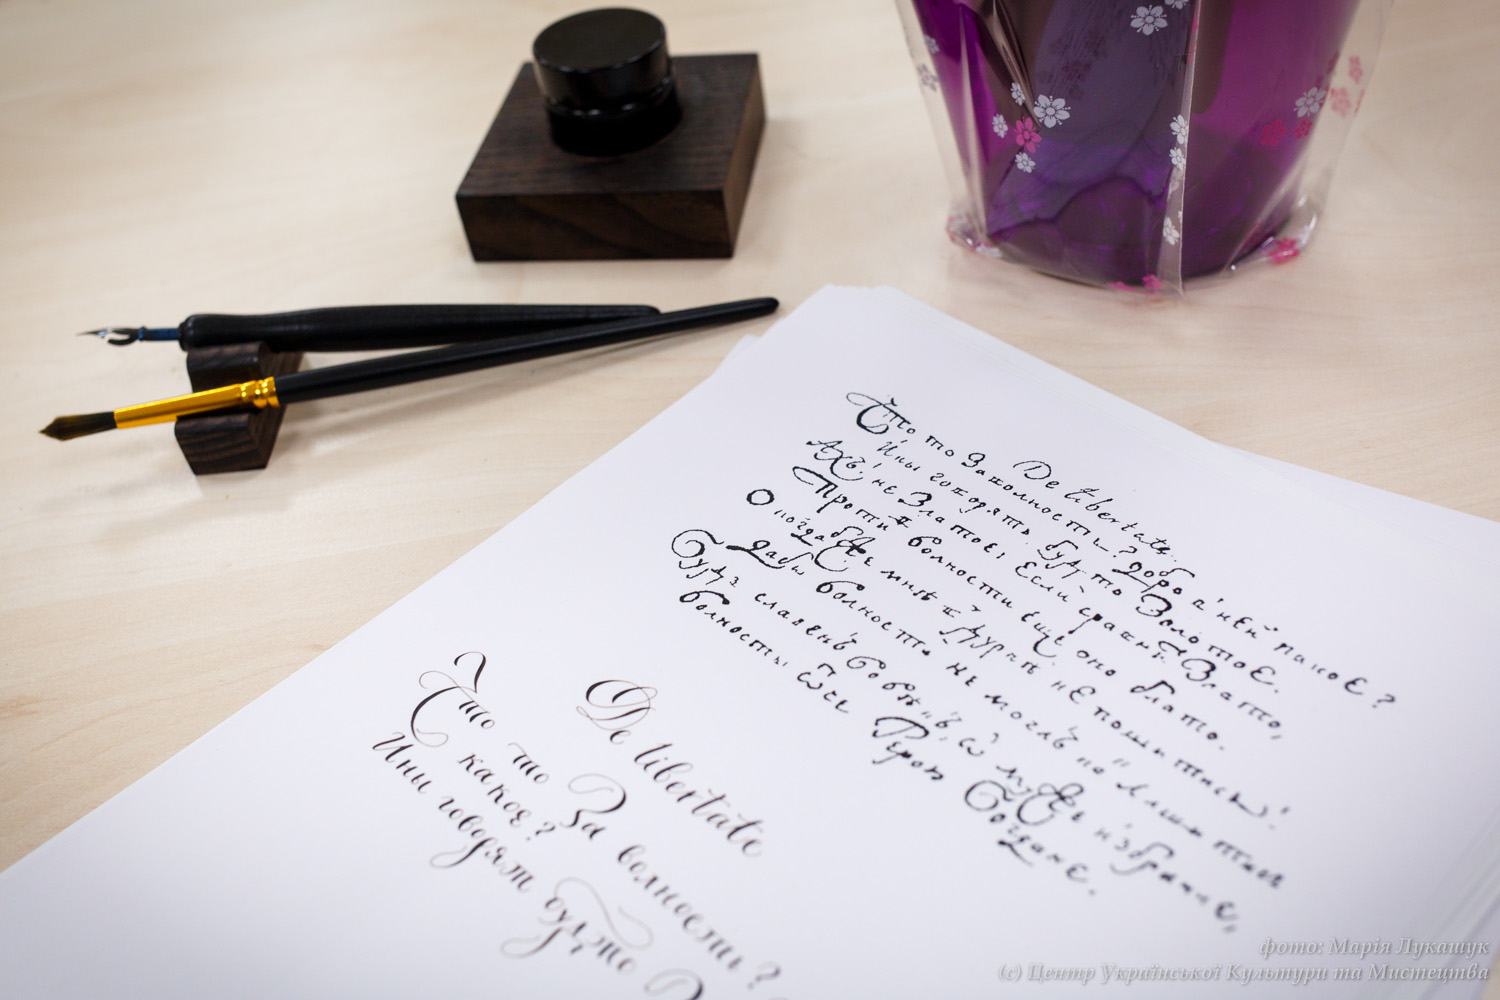 De libertate.
Что то за волность? Добро в ней какое?
Ины говорять, будто золотое.
Ахъ! не златое; если сравнить злато,
Против волности еще оно блато.
О когда бы же мнѣ в дурнѣ не пошитись!
Дабы волности не моглъ лишитись
Будь славенъ вовѣкъ, ѡ муже избранне,
Волносты ѡтче Герою Богдане.
De libertate
Что то За волность?
какое?
Ины говорят будто
фото: Марія Лукащук
(c) Центр Української Культури та Мистецтва